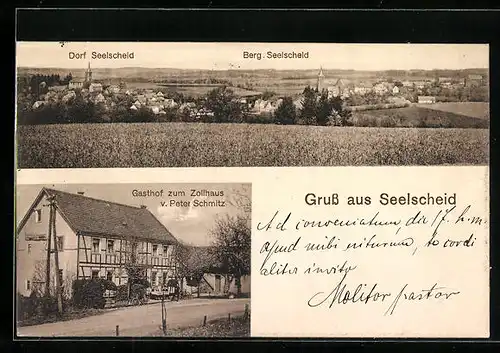 Dorf Seelscheid
Berg. Seelscheid
Gasthof zum Zollhaus
v. Peter Schmitz
Gruß aus Seelscheid
Ad conveniatum, die 17. h. m.
apud mihi
te cordi
aliter invito
Molitor pastor